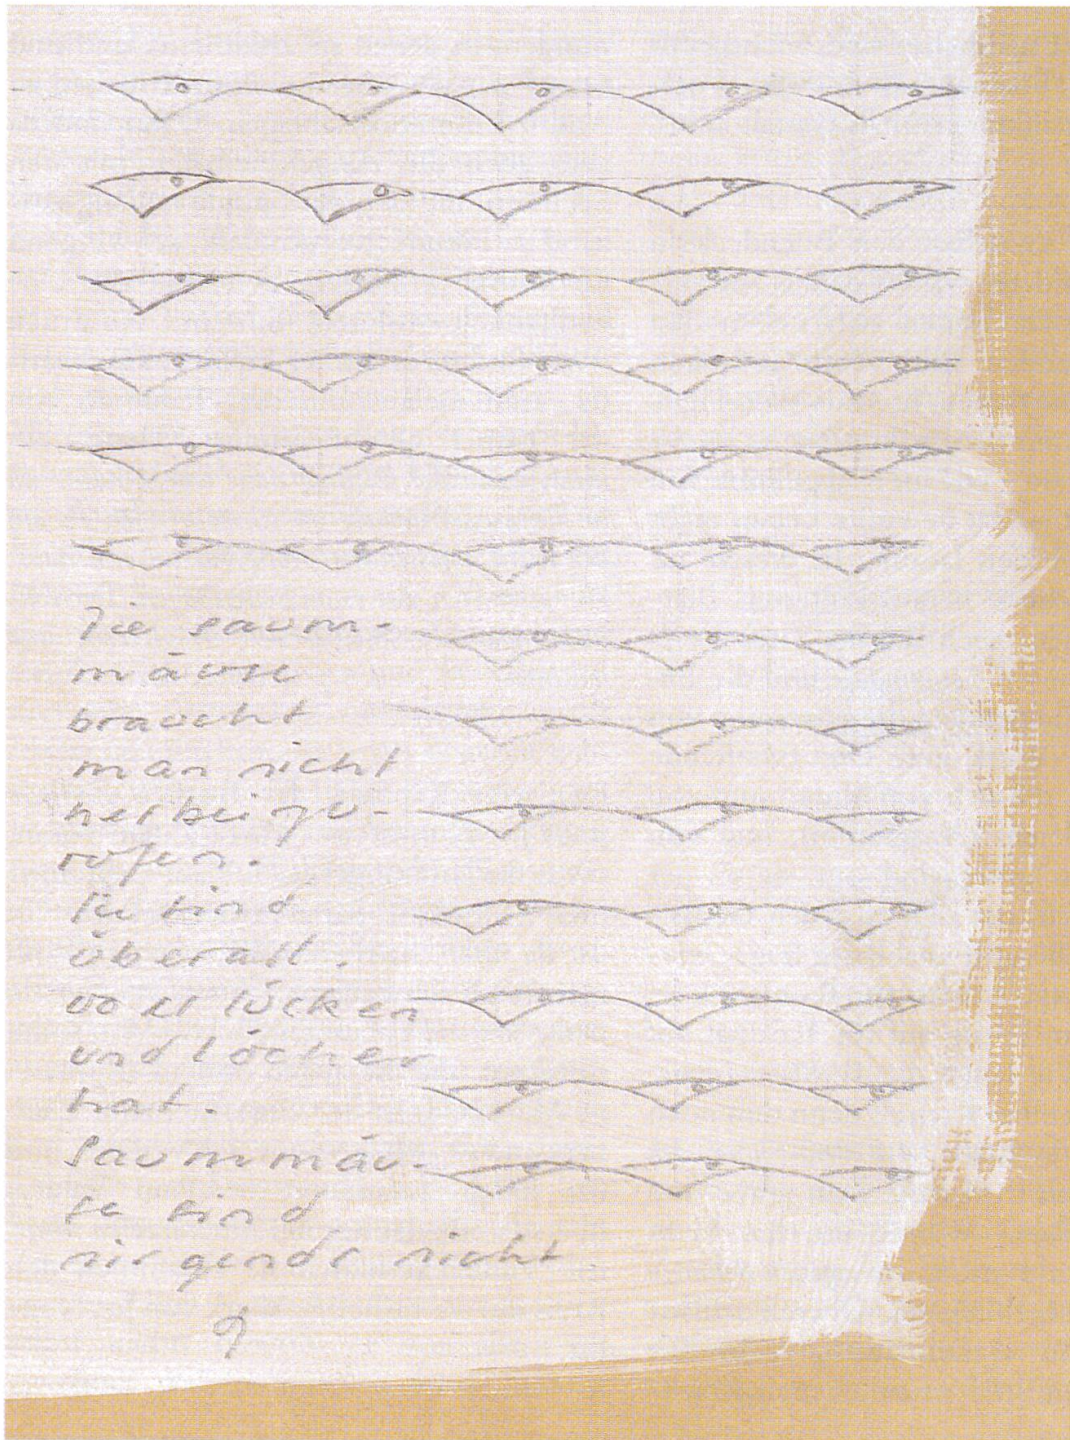 Die saum-
mäuse
braucht
man nicht
herbeizu-
rufen.
sie sind
überall.
wo es lücken
und löcher
hat.
Saummäu-
se sind
nirgends nicht